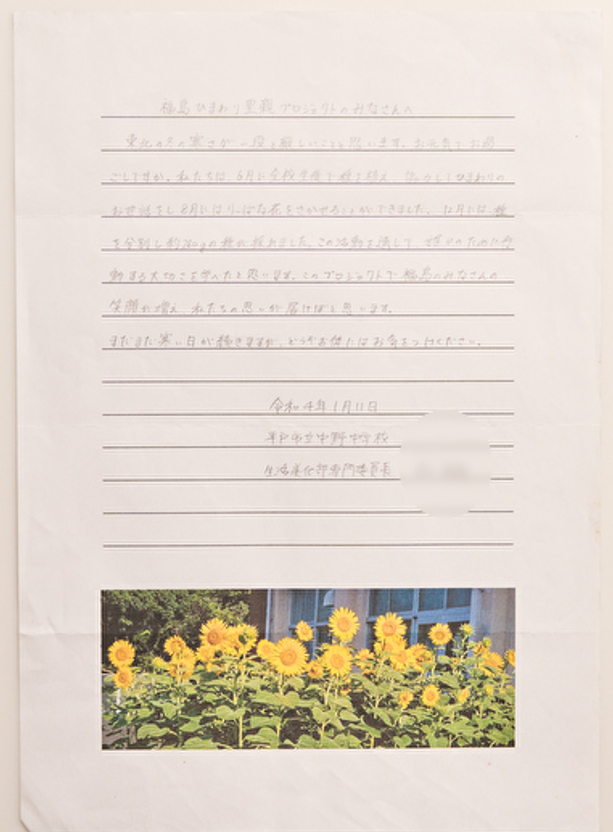 福島ひまわり里親プロジェクトのみなさんへ
東北の冬の寒さが一段と厳しいことと思います。お元気でお過
ごしですか。私たちは、6月に全校生徒で種を植え、ひまわりの
お世話をし8月にはりっぱな花をさかせることができました。12月には、種
を分別し約780gの種が採れました。この活動を通して
動する大切さを学べたと思います。このプロジェクトで福島のみなさんの
笑顔が増え、私たちの思いが届けばと思います。
まだまだ寒い日が続きますが、どうぞお体にはお気をつけください。
令和4年1月11日
平戸市立中野中学校
生活文化部専門委員長